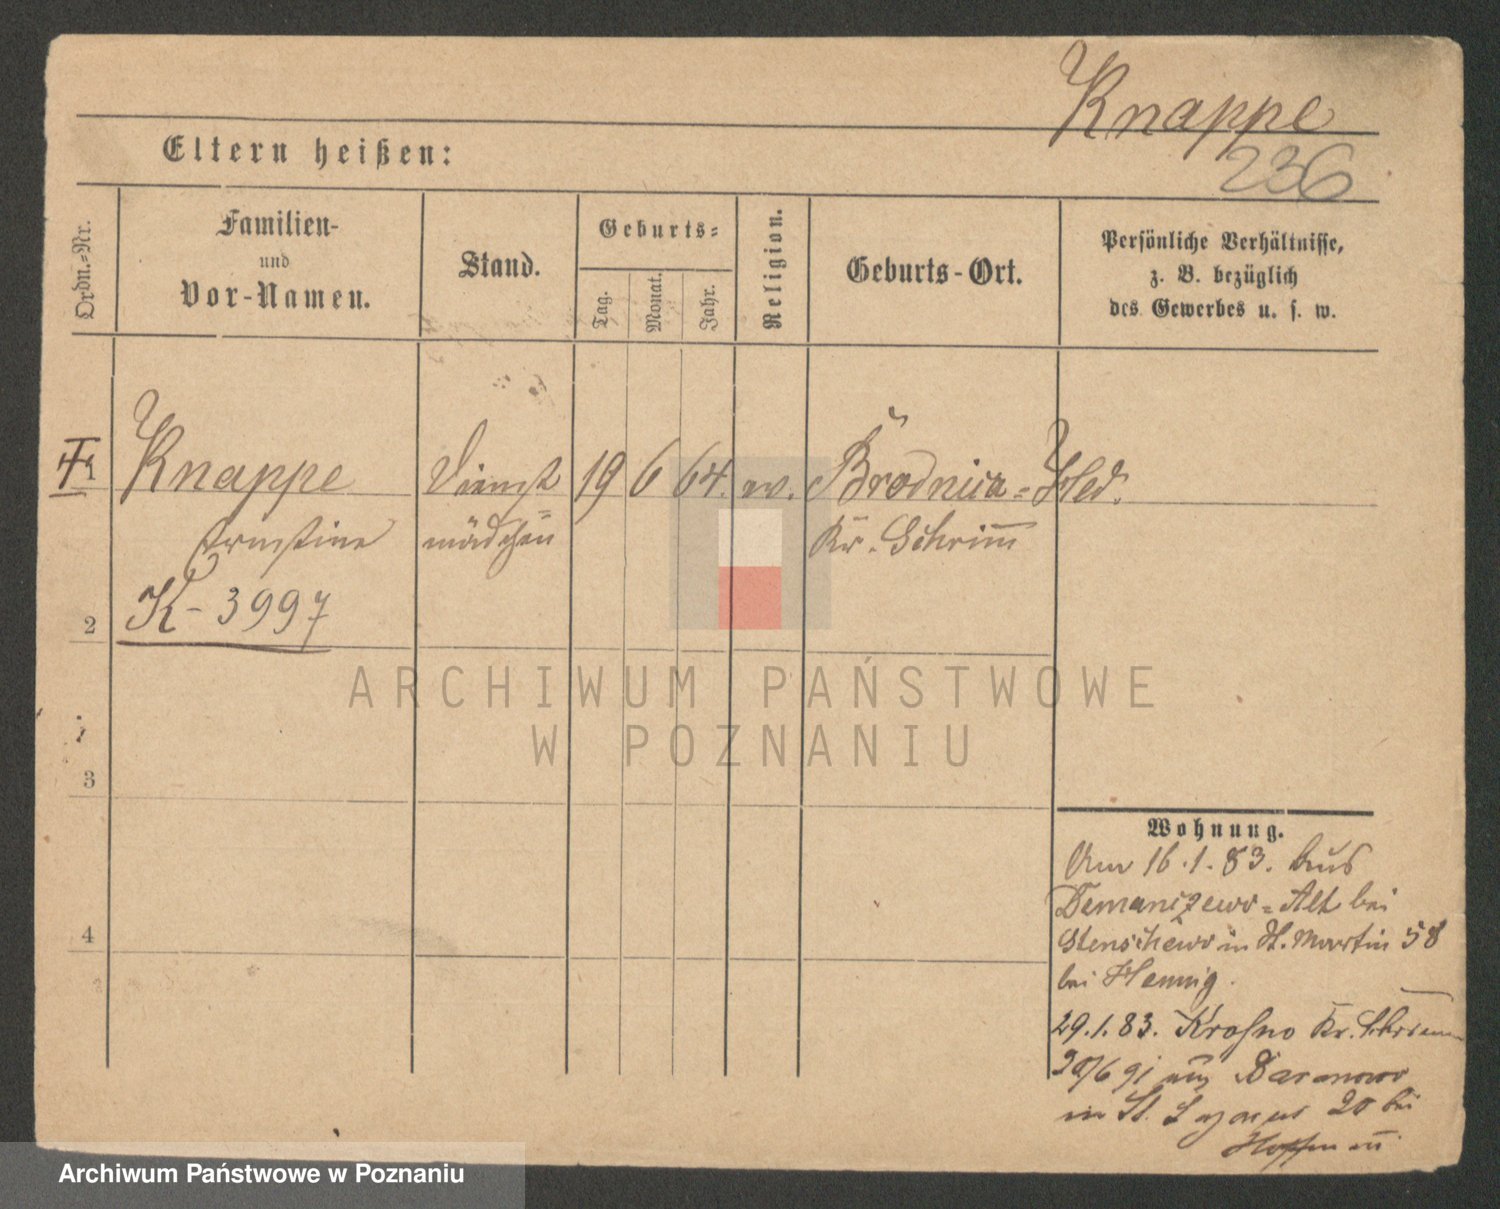 Knappe
236
Eltern heißen:
Ordn.-Nr.
Familien-
und
Vor-Namen.
Stand.
Geburts-
Tag.
Monat.
Jahr.
Religion.
Geburts-Ort.
Persönliche Verhältnisse,
z. B. bezüglich
des Gewerbes u. s. w.
Knappe Dienst 19 6 64. ev. Brodnica-Hld.
Ernstine mädchen Kr. Schrimm
2 K-3997
3
4
Wohnung.
Am 16.1.83. aus
Demanczewo-Alt bei
Stenschewo in St. Martin 58
bei Hennig.
29.1.83. Krosno Kr. Schrimm
30/6 91 aus Baranowo
in St. Lazarus 20 bei
Hoffmann
ARCHIWUM PAŃSTWOWE
W POZNANIU
Archiwum Państwowe w Poznaniu